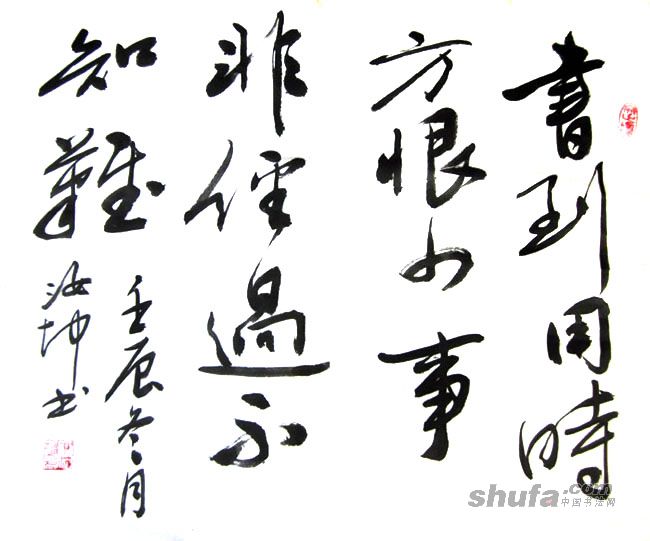 書到用時
方恨少事
非經過不
知難
壬辰冬月
汝坤书
shufa.com
中国书法网